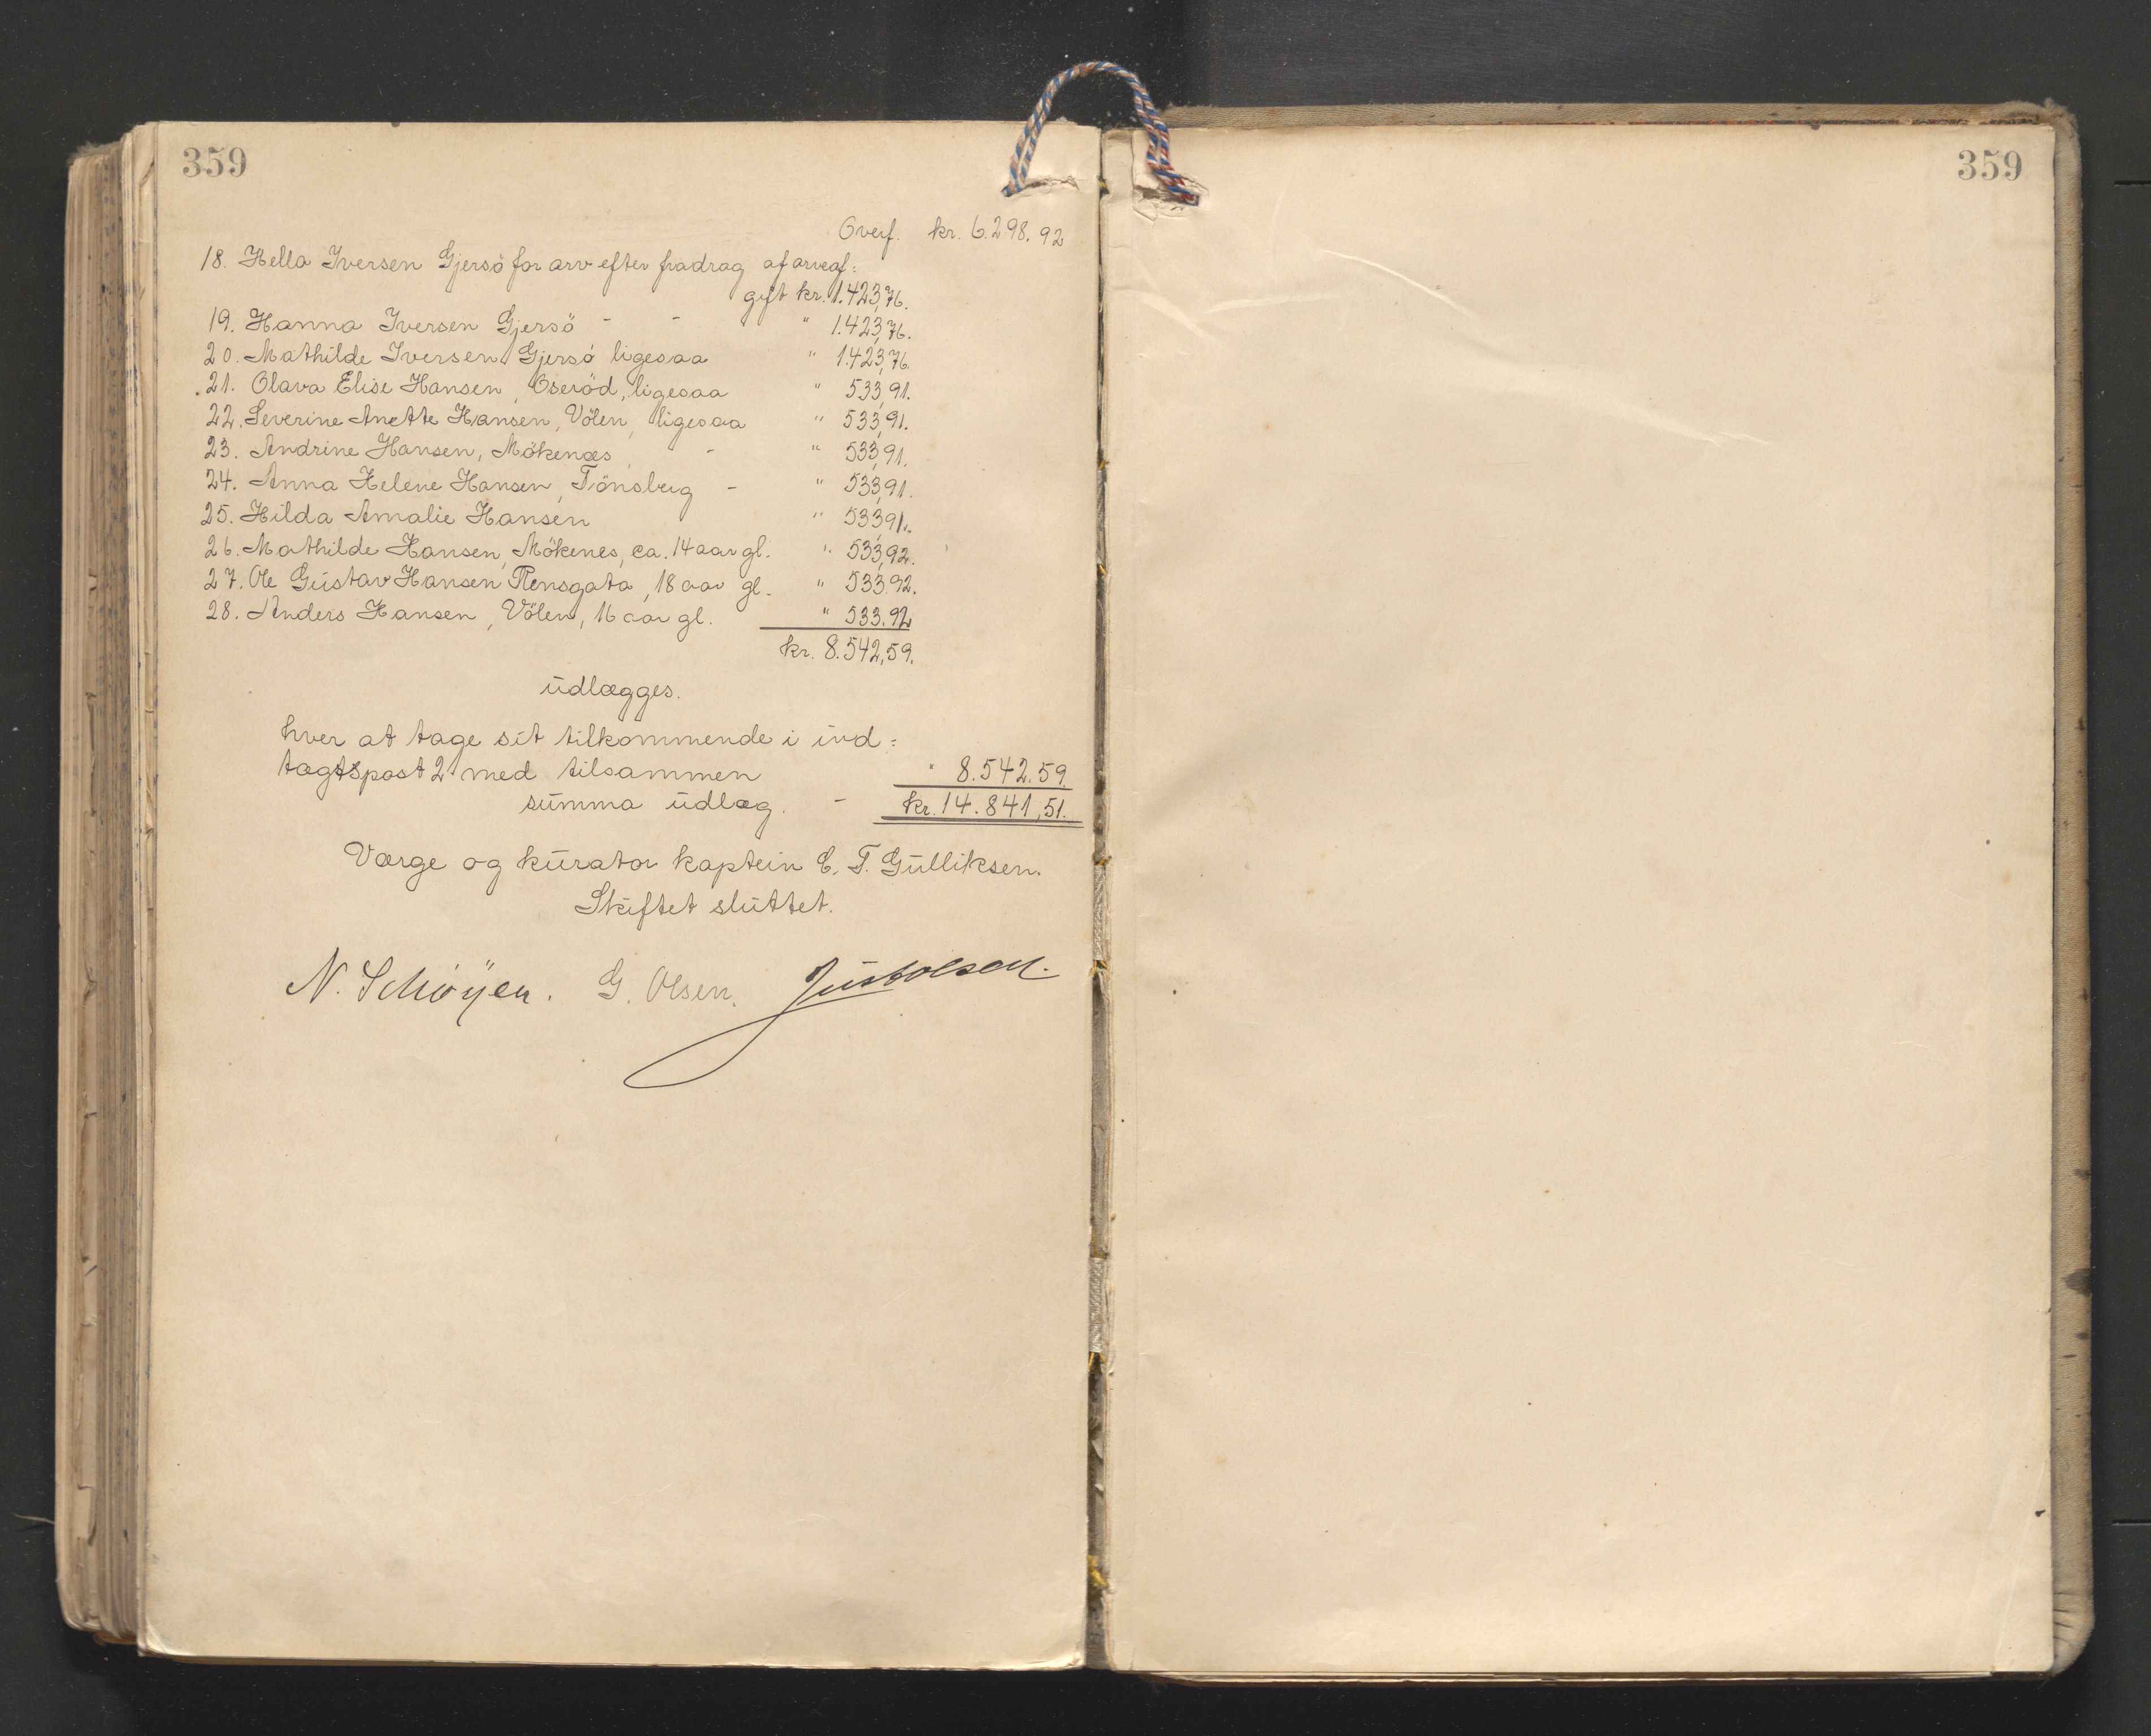 359
359
Overf. kr. 6.298.92
18. Hella Iversen Gjersö for arv efter fradrag af arveaf=
gift kr. 1.423,76.
19. Hanna Iversen Gjersö - - " 1.423,76.
20. Mathilde Iversen Gjersö ligesaa " 1.423,76.
21. Olava Elise Hansen, Oseröd, ligesaa " 533,91.
22. Severine Anette Hansen, Völen, ligesaa " 533,91.
23. Andrine Hansen, Mökenæs, - " 533,91.
24. Anna Helene Hansen, Tönsberg - " 533,91.
25. Hilda Amalie Hansen " 533,91.
26. Mathilde Hansen, Mökenes, ca. 14 aar gl. " 533,92.
27. Ole Gustav Hansen, 18 aar gl. " 533.92.
28. Anders Hansen, Völen, 16 aar gl. " 533.92
kr. 8.542,59.
udlægges.
hver at tage sit tilkommende i ind=
tægtspost 2 med tilsammen " 8.542.59.
summa udlæg. - kr. 14.841,51.
Værge og kurator kaptein C. F. Gulliksen.
Skiftet sluttet.
N. Schöyen. G. Olsen. Just Olsen.